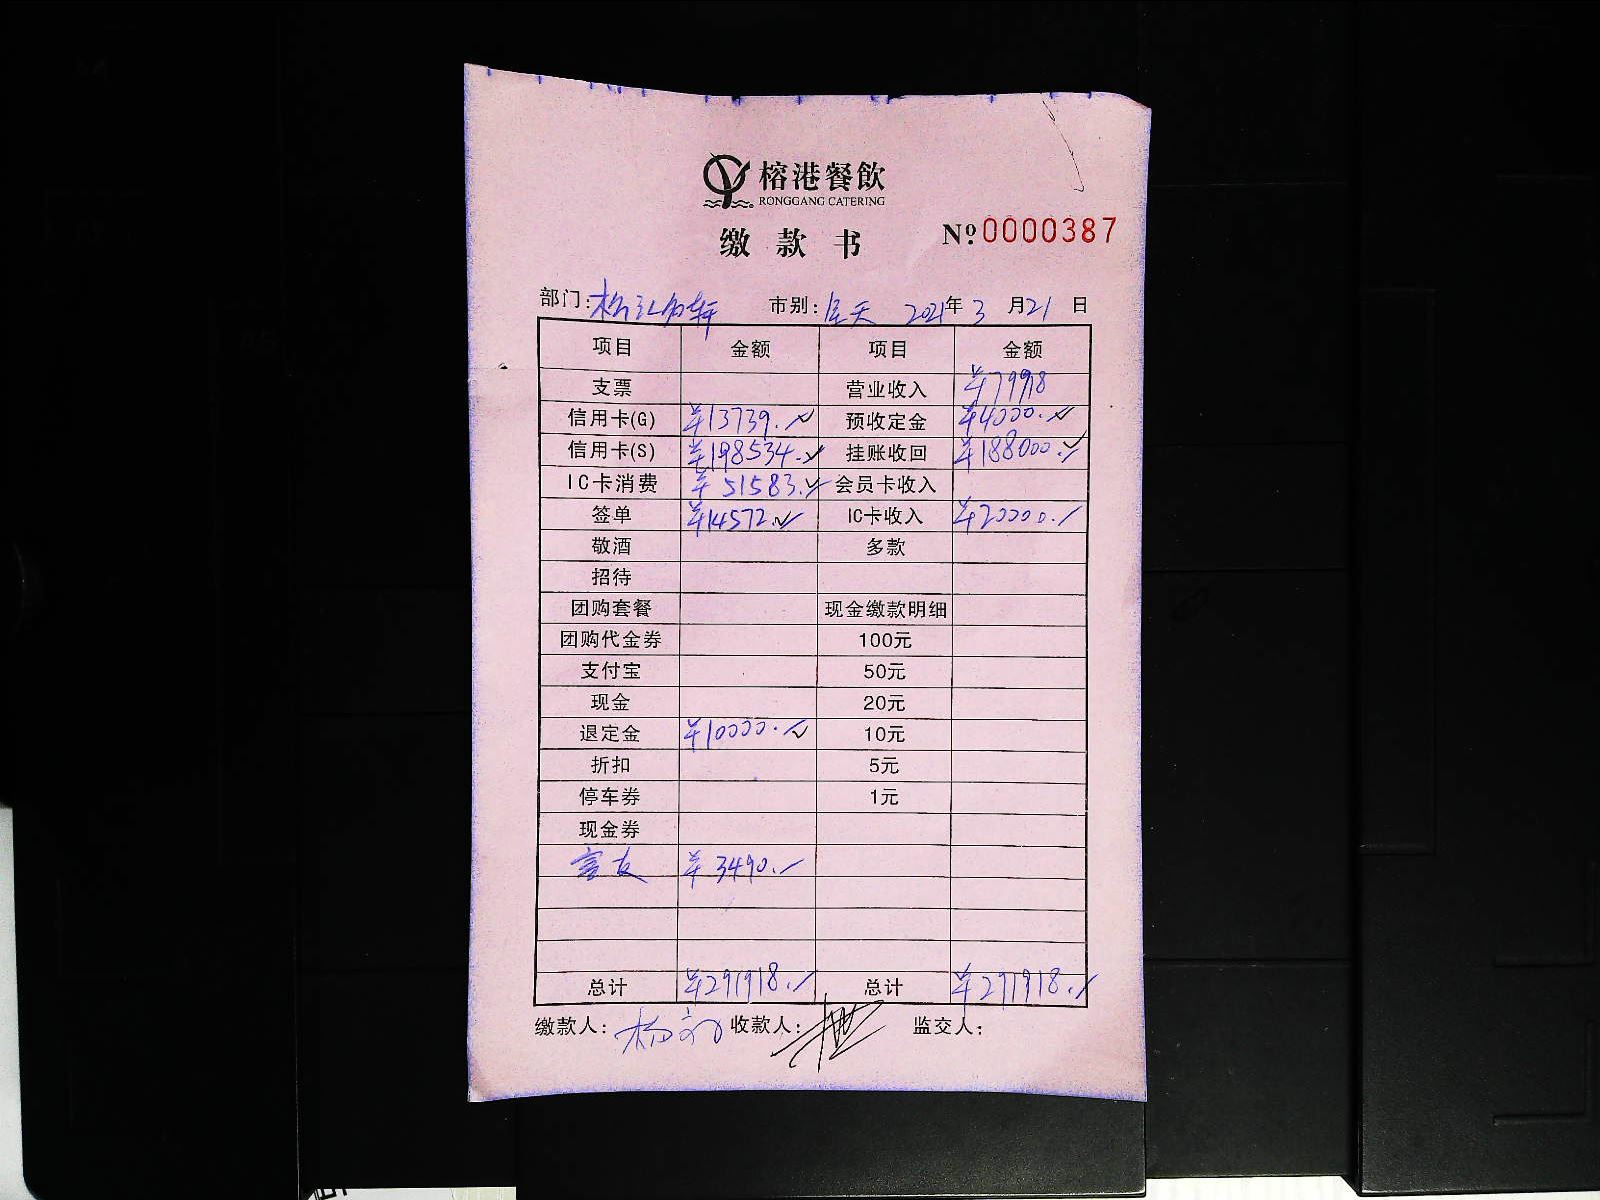 榕港餐飲
RONGGANG CATERING
缴款书
Nº 0000387
部门: 市别: 全天 2021年 3 月 21 日
项目 金额 项目 金额
支票 营业收入 ¥79918
信用卡(G) ¥13739. 预收定金 ¥4000.
信用卡(S) ¥198534. 挂账收回 ¥188000.
IC卡消费 ¥51583. 会员卡收入
签单 ¥14572. IC卡收入 ¥20000.
敬酒 多款
招待
团购套餐 现金缴款明细
团购代金券 100元
支付宝 50元
现金 20元
退定金 ¥10000. 10元
折扣 5元
停车券 1元
现金券
富友 ¥3490.
总计 ¥291918. 总计 ¥291918.
缴款人: 收款人: 监交人: